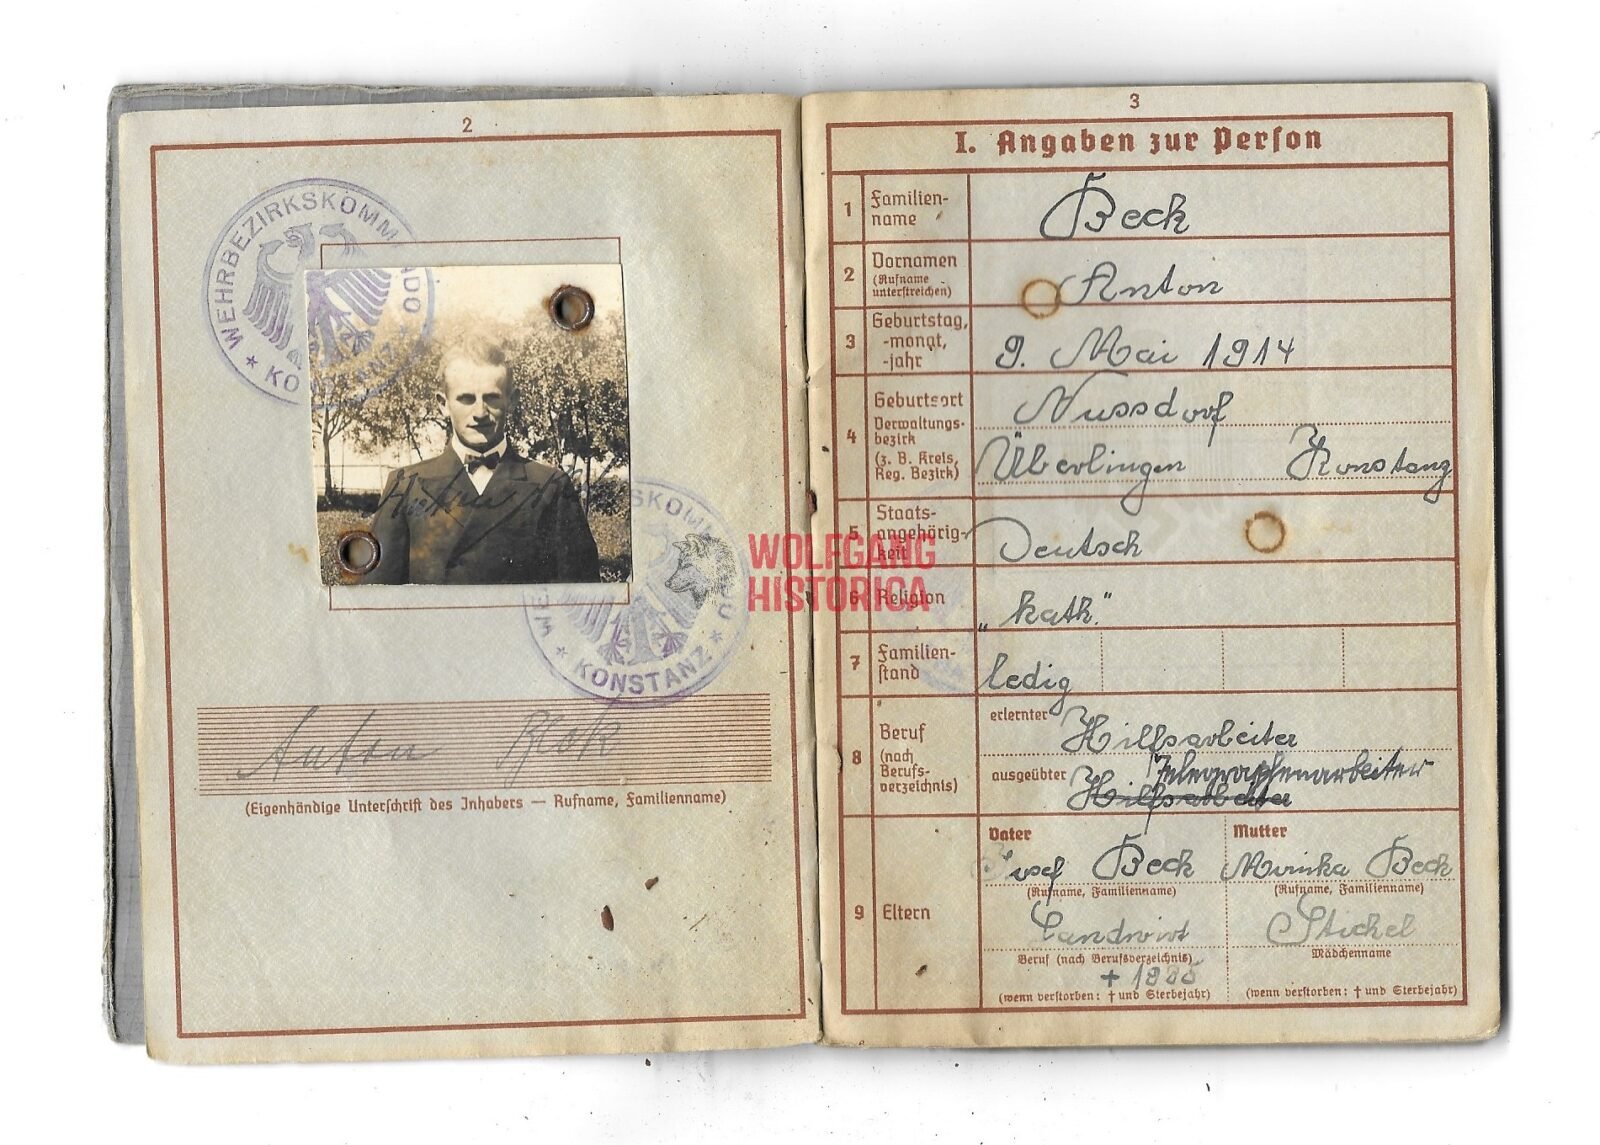 2
WEHRBEZIRKSKOMMANDO
★ KONSTANZ ★
Anton Beck
KONSTANZ
Anton Beck
(Eigenhändige Unterschrift des Inhabers — Rufname, Familienname)
WOLFGANG
HISTORICA
3
I. Angaben zur Person
1 Familien-
name
Beck
2 Vornamen
(Rufname
unterstreichen)
Anton
3 Geburtstag,
-monat,
-jahr
9. Mai 1914
4 Geburtsort
Verwaltungs-
bezirk
(z. B. Kreis,
Reg. Bezirk)
Nussdorf
Überlingen Konstanz
5 Staats-
angehörig-
keit
Deutsch
6 Religion
„kath."
7 Familien-
stand
ledig
8 Beruf
(nach
Berufs-
verzeichnis)
erlernter Hilfsarbeiter
ausgeübter Telegraphenarbeiter
Hilfsarbeiter
9 Eltern
Vater Mutter
Josef Beck Beck
(Rufname, Familienname) (Rufname, Familienname)
Landwirt Stickel
Beruf (nach Berufsverzeichnis) Mädchenname
(wenn verstorben: † und Sterbejahr) (wenn verstorben: † und Sterbejahr)